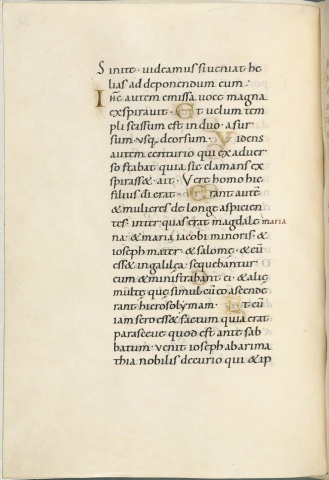 Sinite · uideamus si ueniat he
lias ad deponendum eum ·
Ihc autem emissa uoce magna
exspirauit · Et uelum tem
pli scissum est in duo · a sur
sum · usq; deorsum · Videns
autem centurio qui ex aduer
so stabat quia sic clamans ex
spirass& · ait · Vere homo hic
filius di erat · Erant autē
& mulieres de longe aspicien
tes · inter quas erat magdale maria
na · & maria iacobi minoris · &
ioseph mater · & salome · & cū
ess& in galilęa · sequebantur
eum & ministrabant ei · & alię
multę quę simul cū eo ascende
rant hierosolymam · Et cū
iam sero ess& factum quia erat
parasceue quod est ante sab
batum · uenit ioseph ab arima
thia nobilis decurio qui & ip